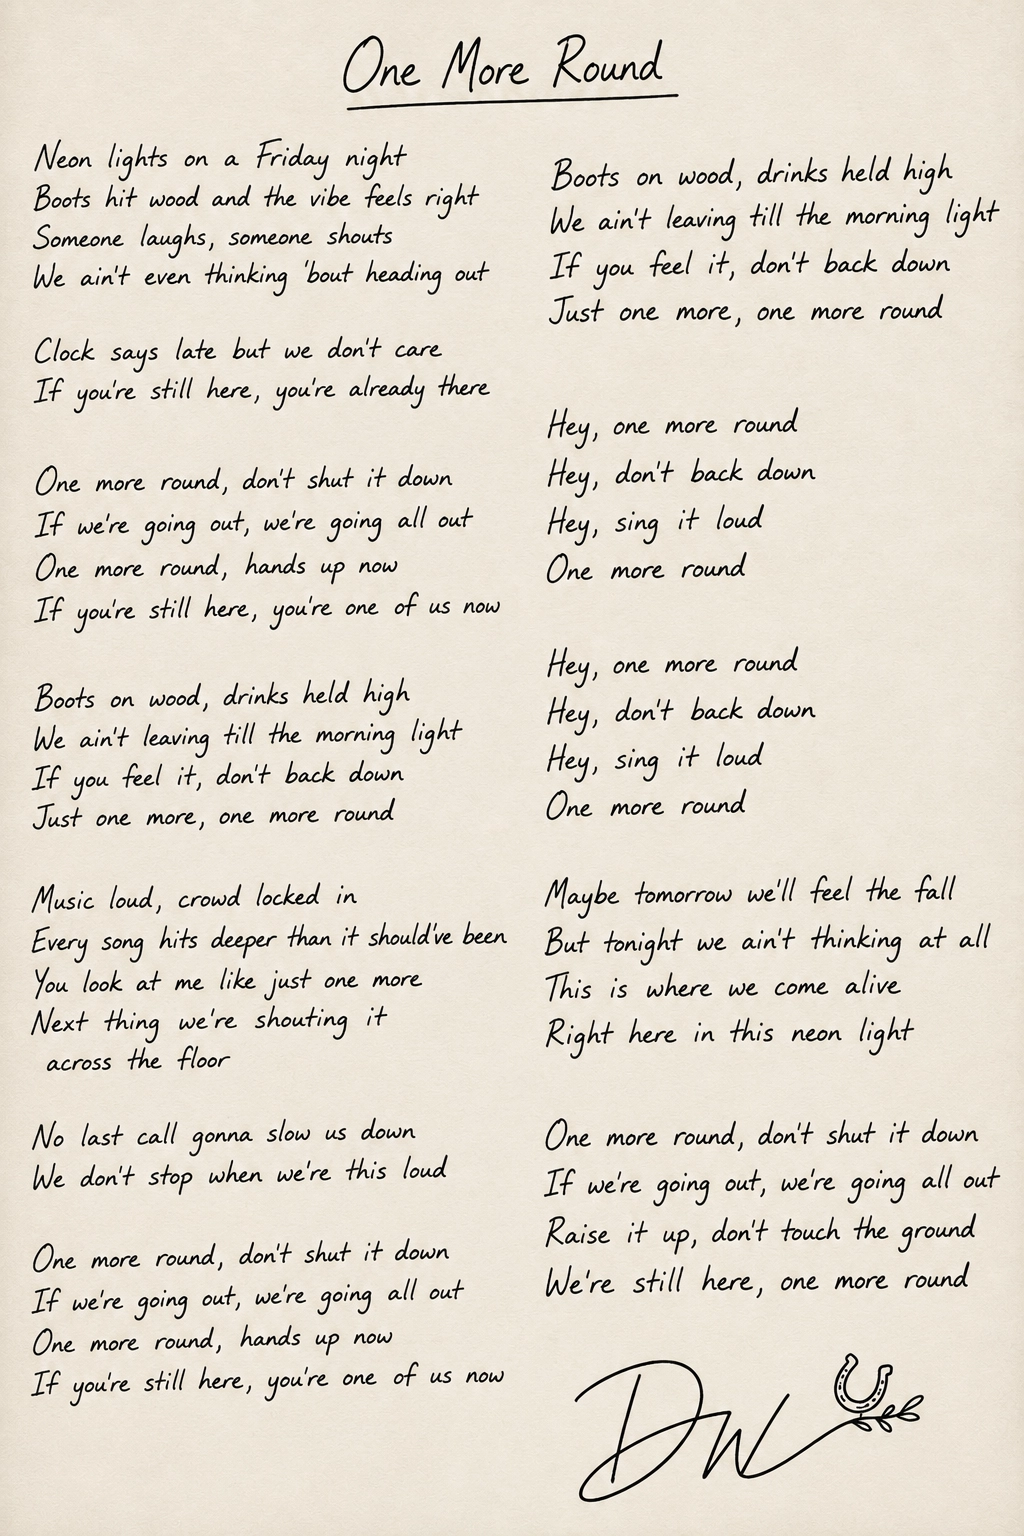 One More Round
Neon lights on a Friday night
Boots hit wood and the vibe feels right
Someone laughs, someone shouts
We ain't even thinking 'bout heading out
Clock says late but we don't care
If you're still here, you're already there
One more round, don't shut it down
If we're going out, we're going all out
One more round, hands up now
If you're still here, you're one of us now
Boots on wood, drinks held high
We ain't leaving till the morning light
If you feel it, don't back down
Just one more, one more round
Music loud, crowd locked in
Every song hits deeper than it should've been
You look at me like just one more
Next thing we're shouting it
across the floor
No last call gonna slow us down
We don't stop when we're this loud
One more round, don't shut it down
If we're going out, we're going all out
One more round, hands up now
If you're still here, you're one of us now
Boots on wood, drinks held high
We ain't leaving till the morning light
If you feel it, don't back down
Just one more, one more round
Hey, one more round
Hey, don't back down
Hey, sing it loud
One more round
Hey, one more round
Hey, don't back down
Hey, sing it loud
One more round
Maybe tomorrow we'll feel the fall
But tonight we ain't thinking at all
This is where we come alive
Right here in this neon light
One more round, don't shut it down
If we're going out, we're going all out
Raise it up, don't touch the ground
We're still here, one more round
DW